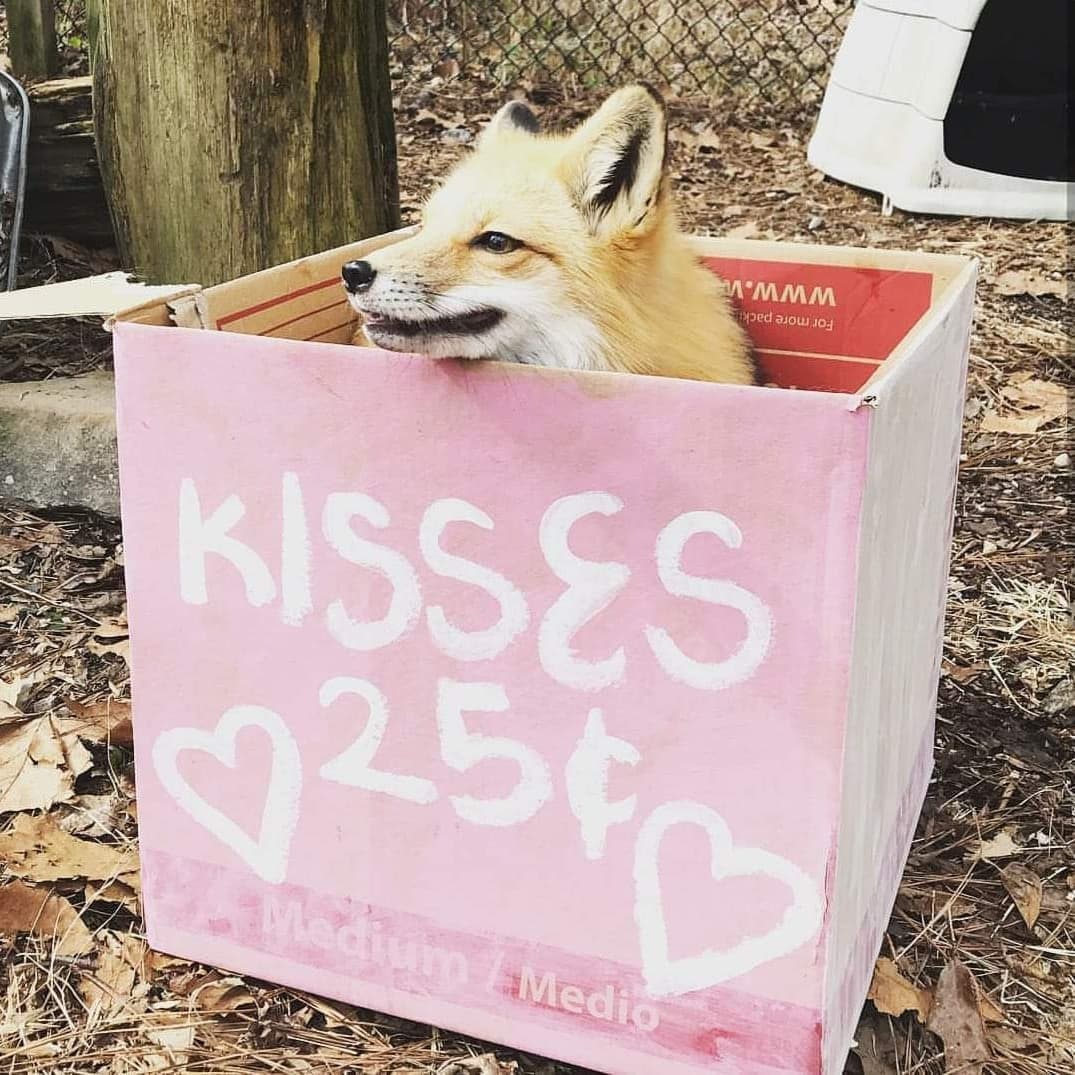 WWW.
For more
KISSES
25¢
Medium / Medio